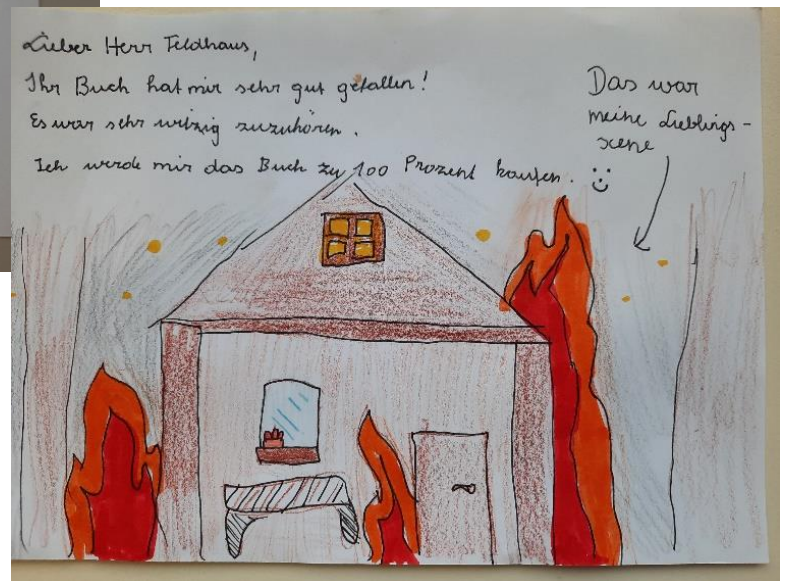 Lieber Herr Feldhaus,
Ihr Buch hat mir sehr gut gefallen!
Es war sehr witzig zuzuhören.
Ich werde mir das Buch zu 100 Prozent kaufen. :)
Das war
meine Lieblings-
szene